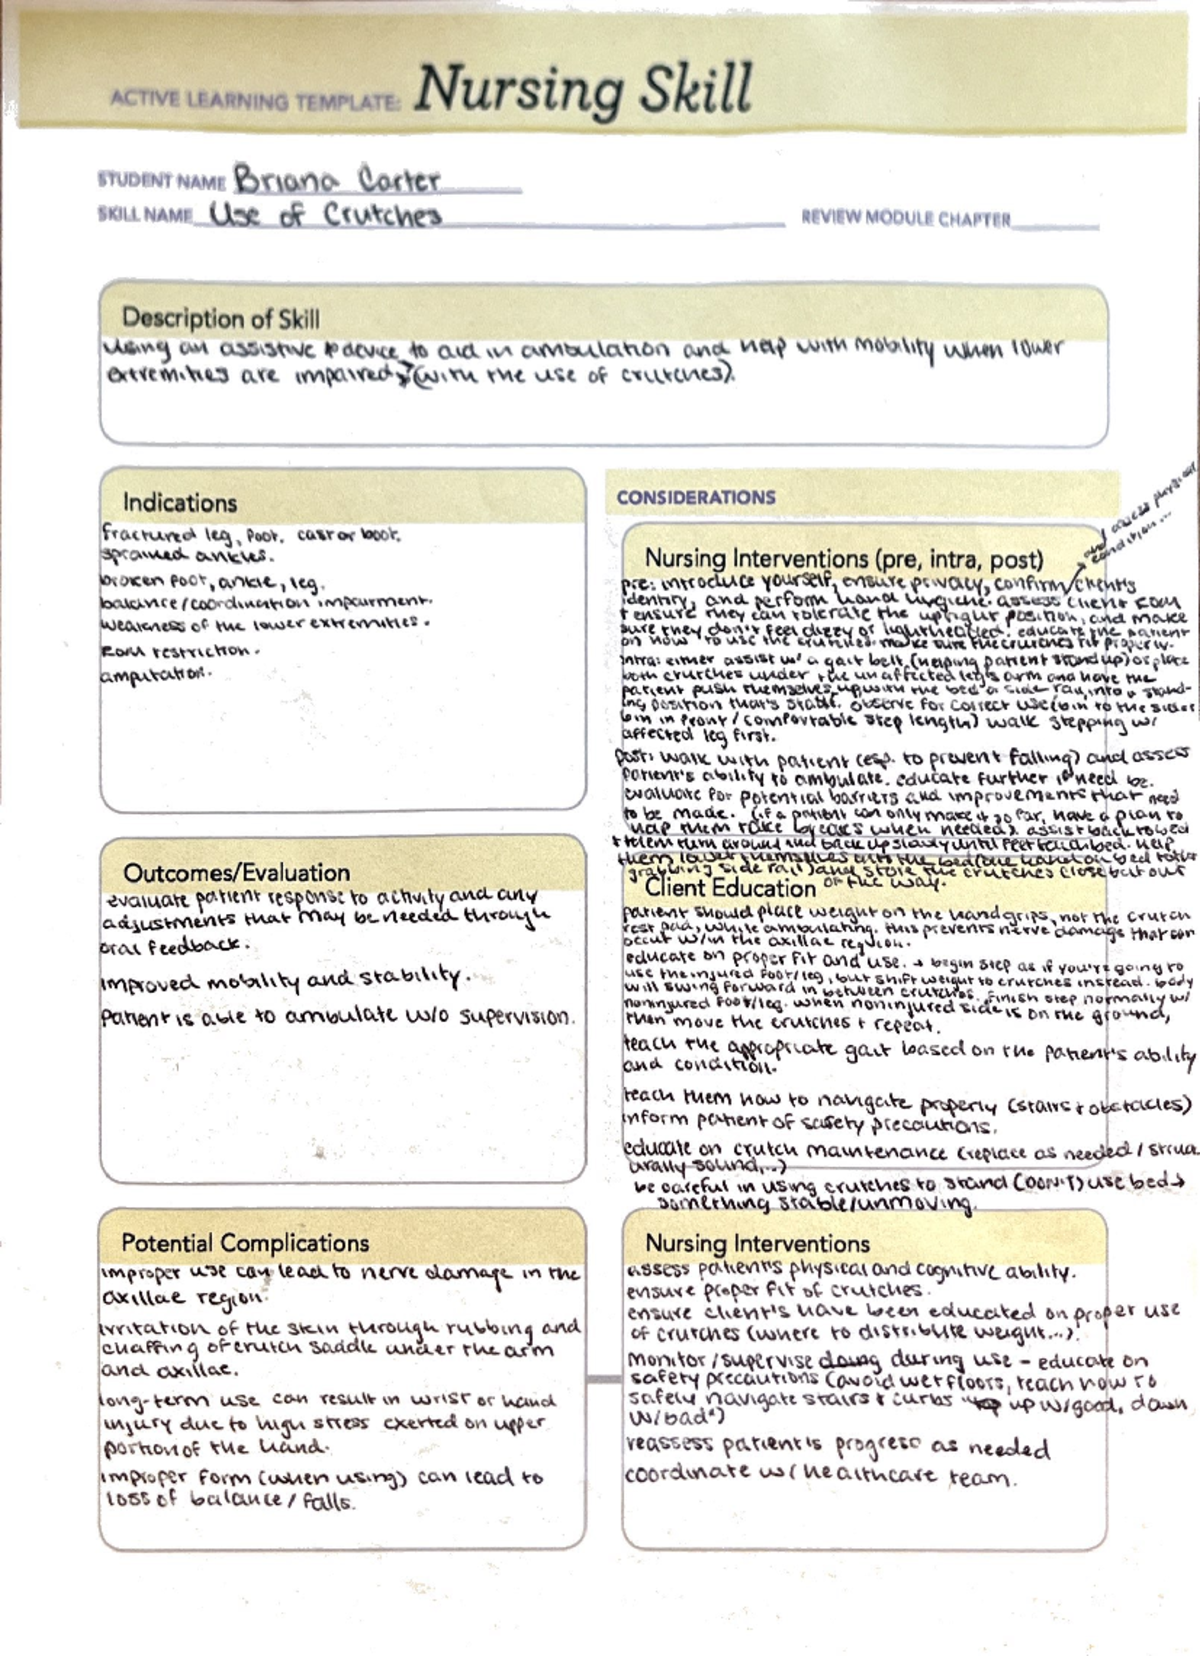 ACTIVE LEARNING TEMPLATE: Nursing Skill
STUDENT NAME Briana Carter
SKILL NAME Use of Crutches REVIEW MODULE CHAPTER
Description of Skill
Using an assistive device to aid in ambulation and help with mobility when lower
extremities are impaired (with the use of crutches).
Indications
fractured leg, foot. cast or boot.
sprained ankles.
broken foot, ankle, leg.
balance/coordination impairment.
weakness of the lower extremities.
ROM restriction.
amputation.
CONSIDERATIONS
and assess physical
condition...
Nursing Interventions (pre, intra, post)
pre: introduce yourself, ensure privacy, confirm client's
identity, and perform hand hygiene. assess client ROM
+ ensure they can tolerate the upright position, and make
sure they don't feel dizzy or lightheaded. educate the patient
on how to use the crutches. make sure the crutches fit properly.
intra: either assist w/ a gait belt (helping patient stand up) or place
both crutches under the unaffected leg's arm and have the
patient push themselves up with the bed a side rail, into a stand-
ing position that's stable. observe for correct use (6in to the sides
6in in front/comfortable step length) walk stepping w/
affected leg first.
post: walk with patient (esp. to prevent falling) and assess
patient's ability to ambulate. educate further if need be.
evaluate for potential barriers and improvements that need
to be made. (if a patient can only make it so far, have a plan to
help them take breaks when needed). assist back to bed
+ them turn around and back up slowly until feet touch bed. help
them lower themselves onto the bed (one hand on bed
grabbing side rail) and store the crutches close but out
of the way.
Outcomes/Evaluation
evaluate patient response to activity and any
adjustments that may be needed through
oral feedback.
improved mobility and stability.
patient is able to ambulate w/o supervision.
Client Education
patient should place weight on the handgrips, not the crutch
rest pad, while ambulating. this prevents nerve damage that can
occur w/in the axillae region.
educate on proper fit and use. → begin step as if you're going to
use the injured foot/leg, but shift weight to crutches instead. body
will swing forward in between crutches. finish step normally w/
noninjured foot/leg. when noninjured side is on the ground,
then move the crutches + repeat.
teach the appropriate gait based on the patient's ability
and condition.
teach them how to navigate properly (stairs + obstacles)
inform patient of safety precautions.
educate on crutch maintenance (replace as needed / struct
urally sound,...)
be careful in using crutches to stand (DON'T) use bed →
something stable/unmoving.
Potential Complications
improper use can lead to nerve damage in the
axillae region.
irritation of the skin through rubbing and
chaffing of crutch saddle under the arm
and axillae.
long-term use can result in wrist or hand
injury due to high stress exerted on upper
portion of the hand.
improper form (when using) can lead to
loss of balance/falls.
Nursing Interventions
assess patient's physical and cognitive ability.
ensure proper fit of crutches.
ensure client's have been educated on proper use
of crutches (where to distribute weight...).
monitor/supervise during use - educate on
safety precautions (avoid wet floors, teach how to
safely navigate stairs + curbs " up w/good, down
w/bad")
reassess patient's progress as needed
coordinate w/ healthcare team.